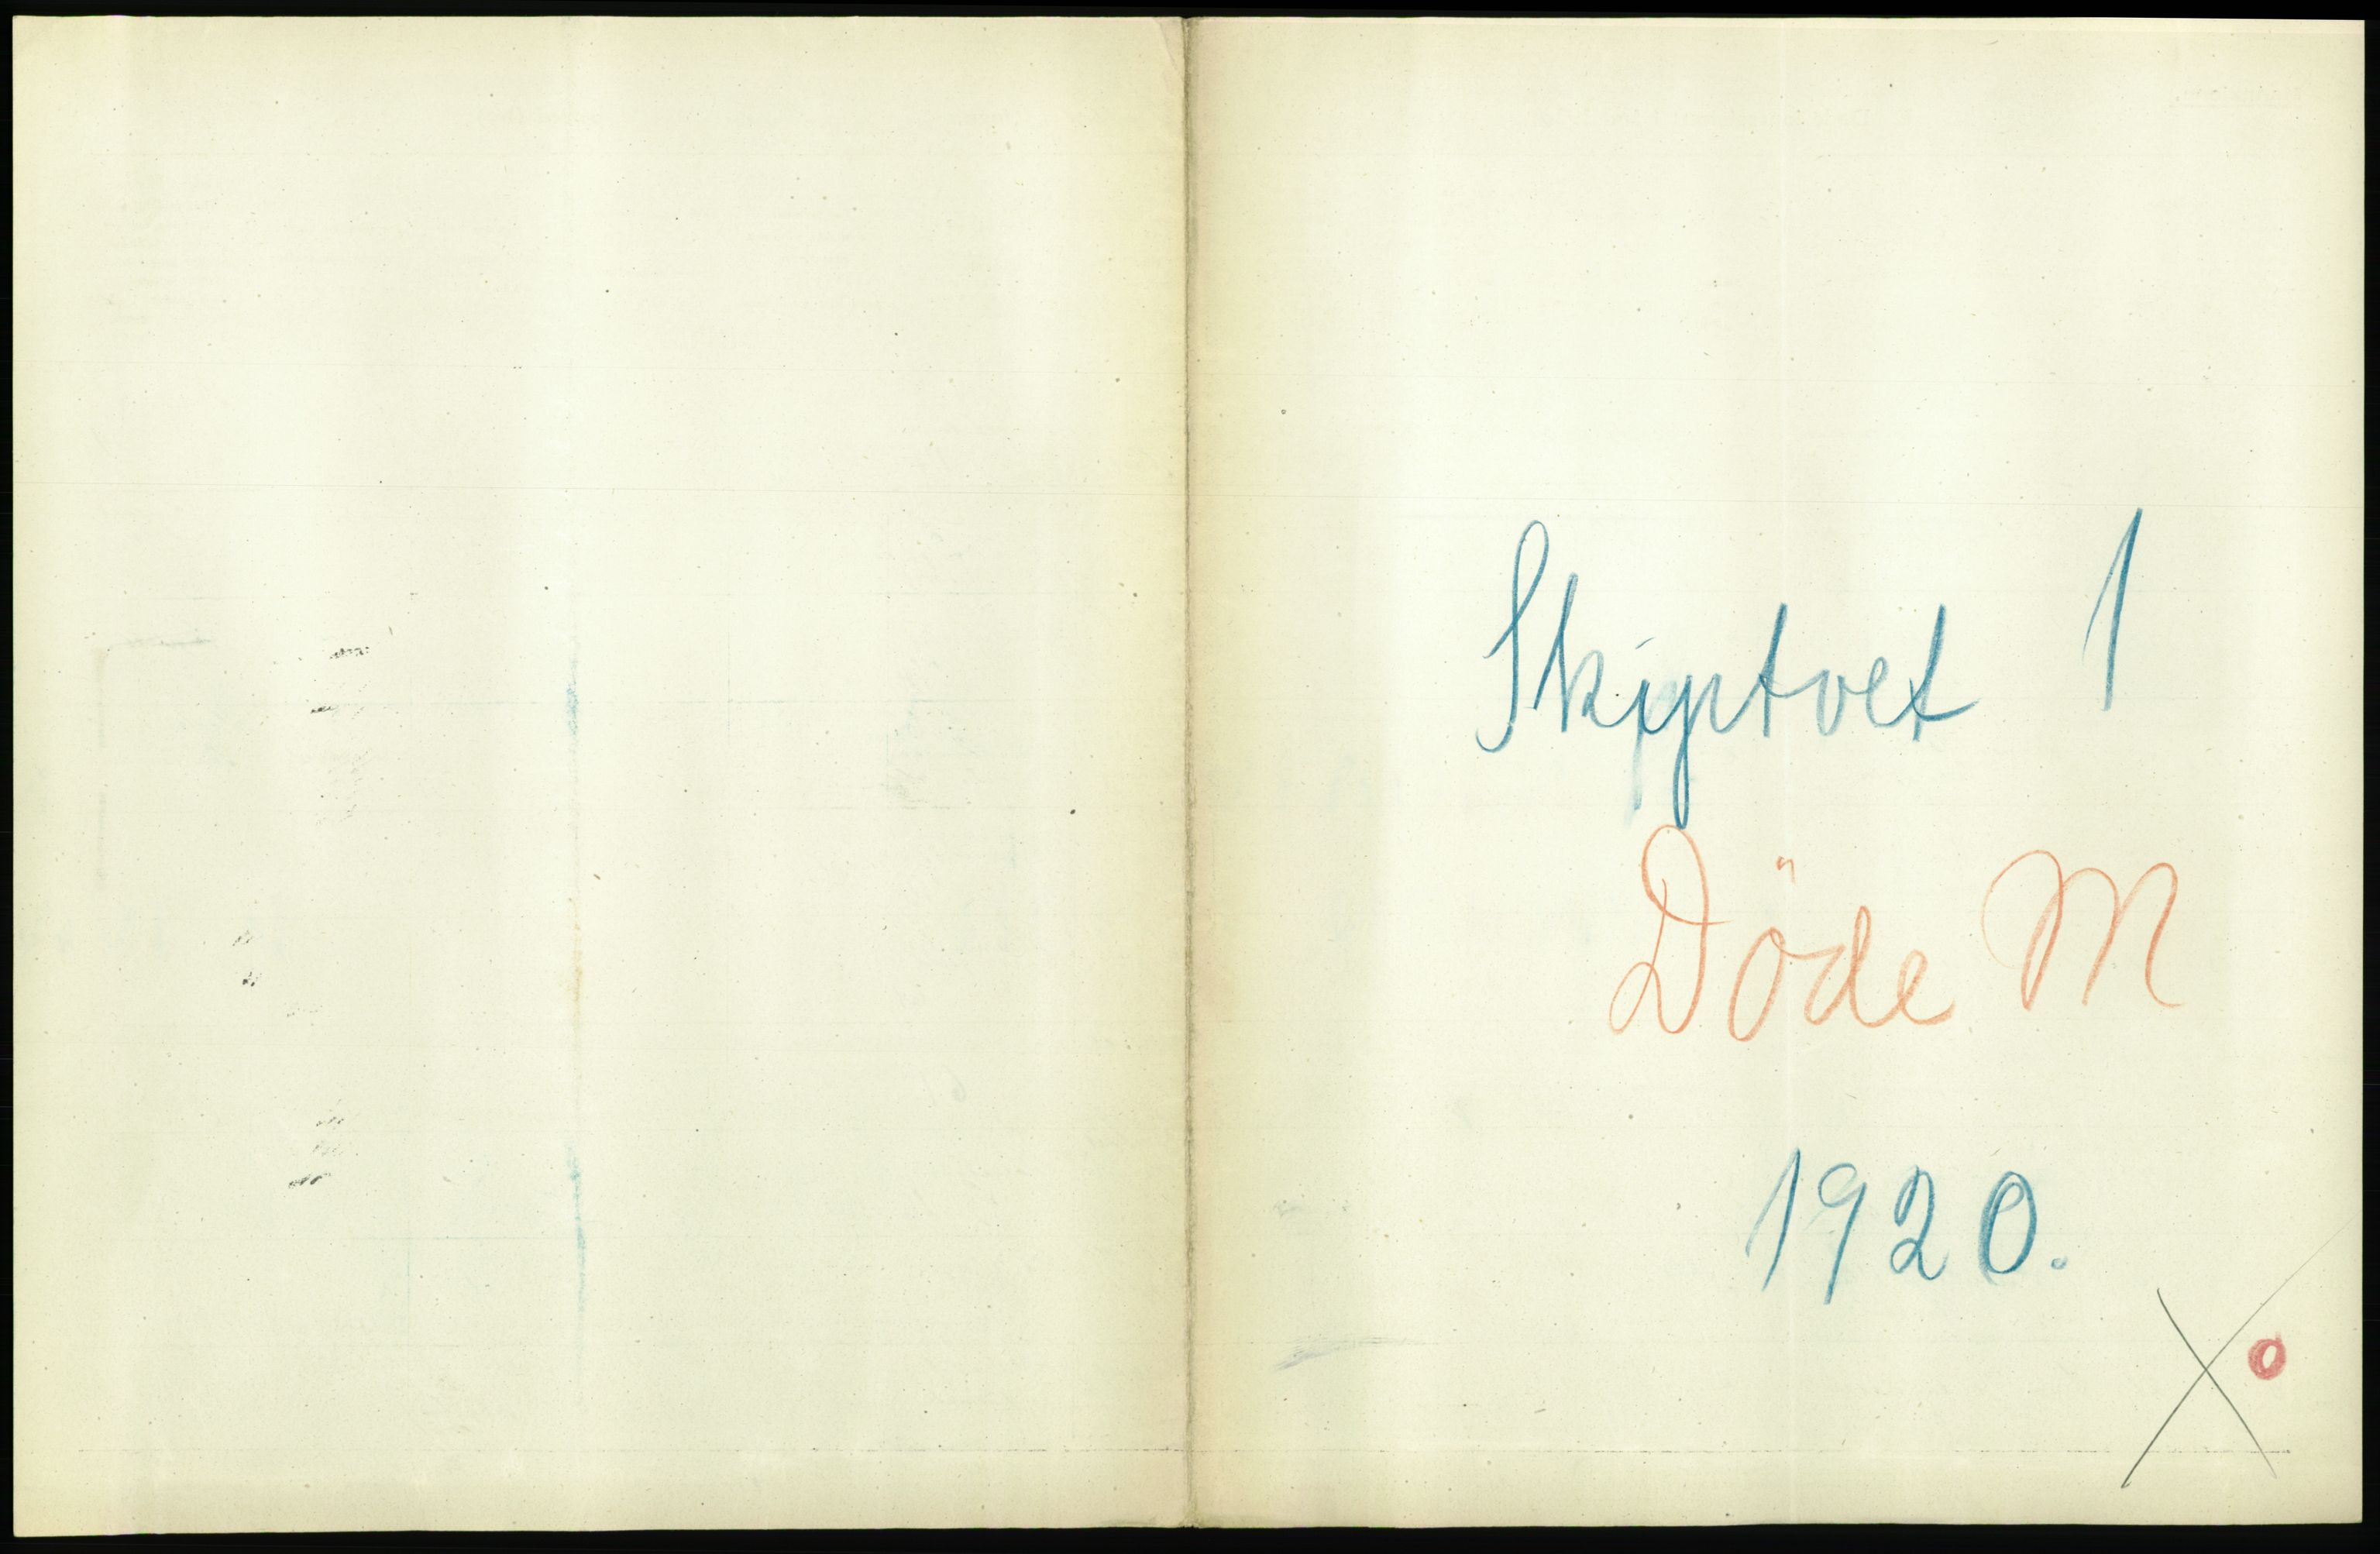 Skiptvet 1
Döde M
1920.